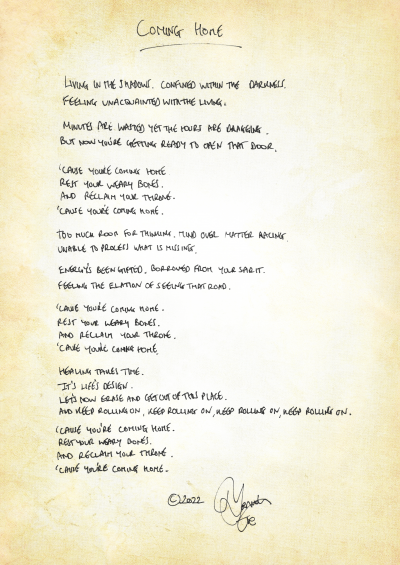 COMING HOME
LIVING IN THE SHADOWS. CONFINED WITHIN THE DARKNESS.
FEELING UNACQUAINTED WITH THE LIVING.
MINUTES ARE WASTED YET THE HOURS ARE DRAGGING.
BUT NOW YOU'RE GETTING READY TO OPEN THAT DOOR.
'CAUSE YOU'RE COMING HOME
REST YOUR WEARY BONES.
AND RECLAIM YOUR THRONE.
'CAUSE YOU'RE COMING HOME.
TOO MUCH ROOM FOR THINKING. MIND OVER MATTER RACING.
UNABLE TO PROCESS WHAT IS MISSING.
ENERGY'S BEEN GIFTED. BORROWED FROM YOUR SPIRIT.
FEELING THE ELATION OF SEEING THAT ROAD.
'CAUSE YOU'RE COMING HOME.
REST YOUR WEARY BONES.
AND RECLAIM YOUR THRONE.
'CAUSE YOU'RE COMING HOME.
HEALING TAKES TIME.
IT'S LIFE'S DESIGN.
LET'S NOW ERASE AND GET OUT OF THIS PLACE.
AND KEEP ROLLING ON, KEEP ROLLING ON, KEEP ROLLING ON, KEEP ROLLING ON.
'CAUSE YOU'RE COMING HOME.
REST YOUR WEARY BONES.
AND RECLAIM YOUR THRONE.
'CAUSE YOU'RE COMING HOME.
©2022